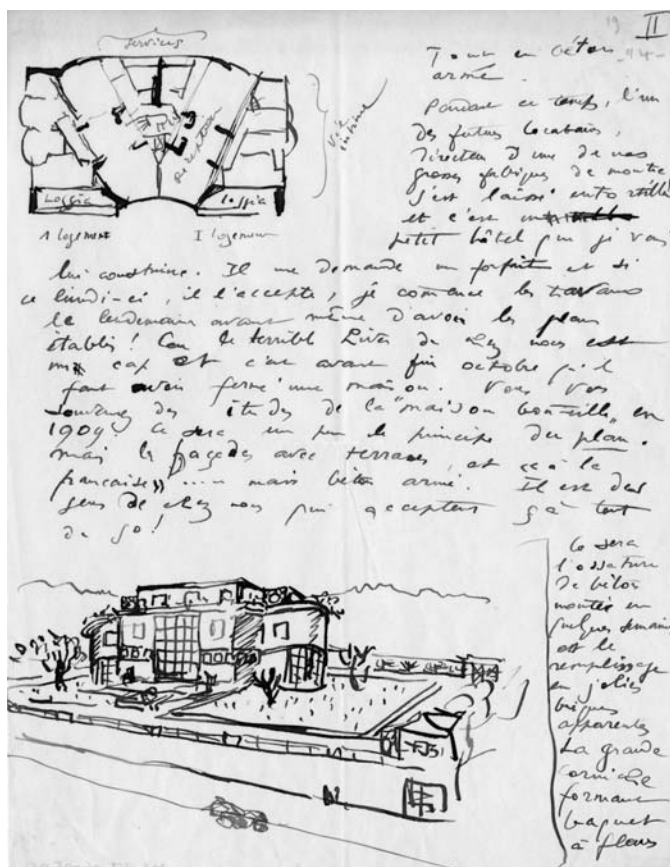 II
Services
Tout en béton
armé.
Vie intime
Réception
Loggia
Loggia
1 logement
I logement
Pendant ce temps, l'un
des futurs locataires,
Directeur d'une de nos
grosses fabriques de montres
s'est laissé entortiller
et c'est un
petit hôtel que je vais
lui construire. Il me demande un forfait et si
ce lundi-ci, il l'accepte, je commence les travaux
le lendemain avant même d'avoir les plans
établis! Car le terrible hiver de nous est
un cap et c'est avant fin octobre qu'il
faut avoir fermé une maison. Vous vous
souvenez des études de la "maison bouteille" en
1909? Ce sera un peu le principe du plan.
mais les façades avec terrasses, et ça à la
française» ..... mais béton armé. Il est des
gens de chez nous qui acceptent ça tout
de go!
Ce sera
l'ossature
de béton
montée en
quelques semaines
et le
remplissage
en jolies
briques
apparentes
La grande
corniche
formant
baquet
à fleurs